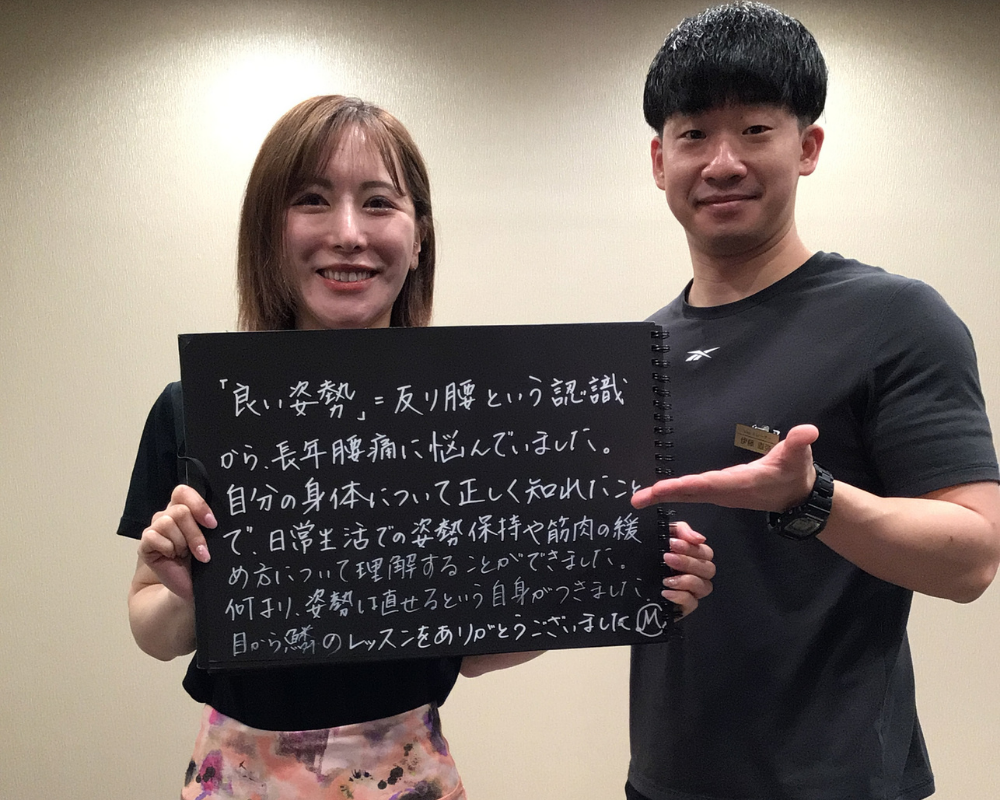 「良い姿勢」=反り腰という認識
から、長年腰痛に悩んでいました。
自分の身体について正しく知れたこと
で、日常生活での姿勢保持や筋肉の緩
め方について理解することができました。
何より、姿勢は直せるという自身がつきました。
目から鱗のレッスンをありがとうございました Ⓜ